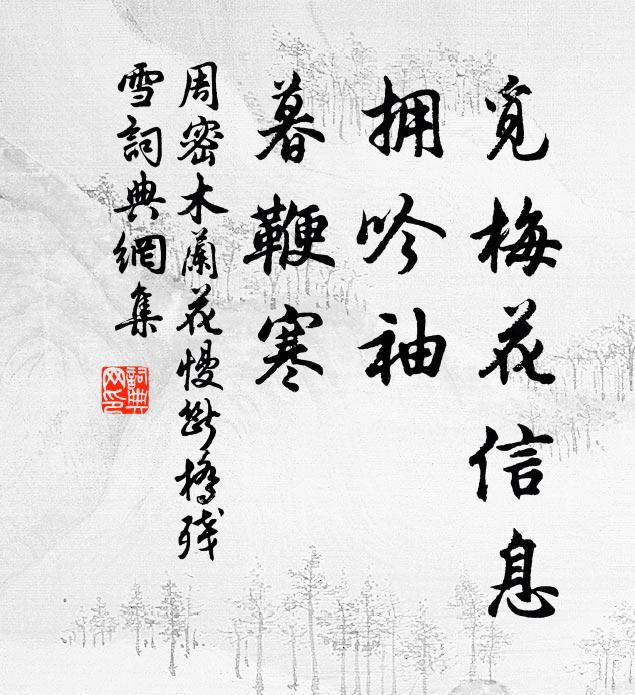 觅梅花信息
拥吟袖
暮鞭寒
周密木蘭花慢斷橋残
雪詞典網集
詞典
网印